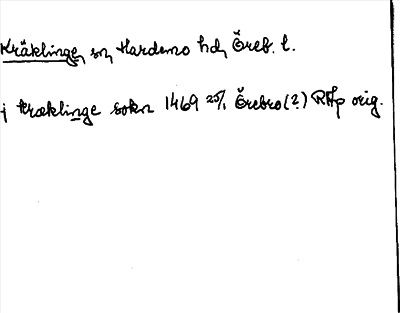 Kräklinge, sn, Hardemo hd, Öreb. l.
i Kræklinge sokn 1469 25/1 Örebro (?) RAp orig.